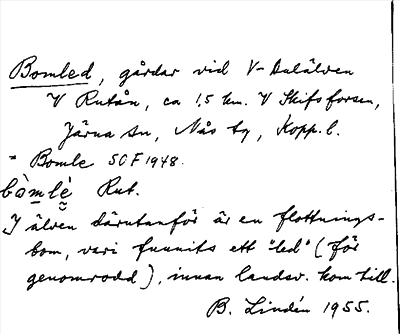 Bomled, gårdar vid V-Dalälven
V Rutån, ca 1,5 km. V Skifsforsen,
Järna sn, Nås tg, Kopp.l.
= Bomle SOF 1948.
bòmlè Rut.
I älven därutanför är en flottnings-
bom, vari funnits ett "led" (för
genomrodd), innan landsv. kom till.
B. Lindén 1955.